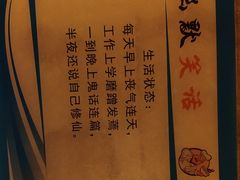 幽默笑话
生活状态：
每天早上丧气连天，
工作上学磨蹭发蔫，
一到晚上鬼话连篇，
半夜还说自己修仙。